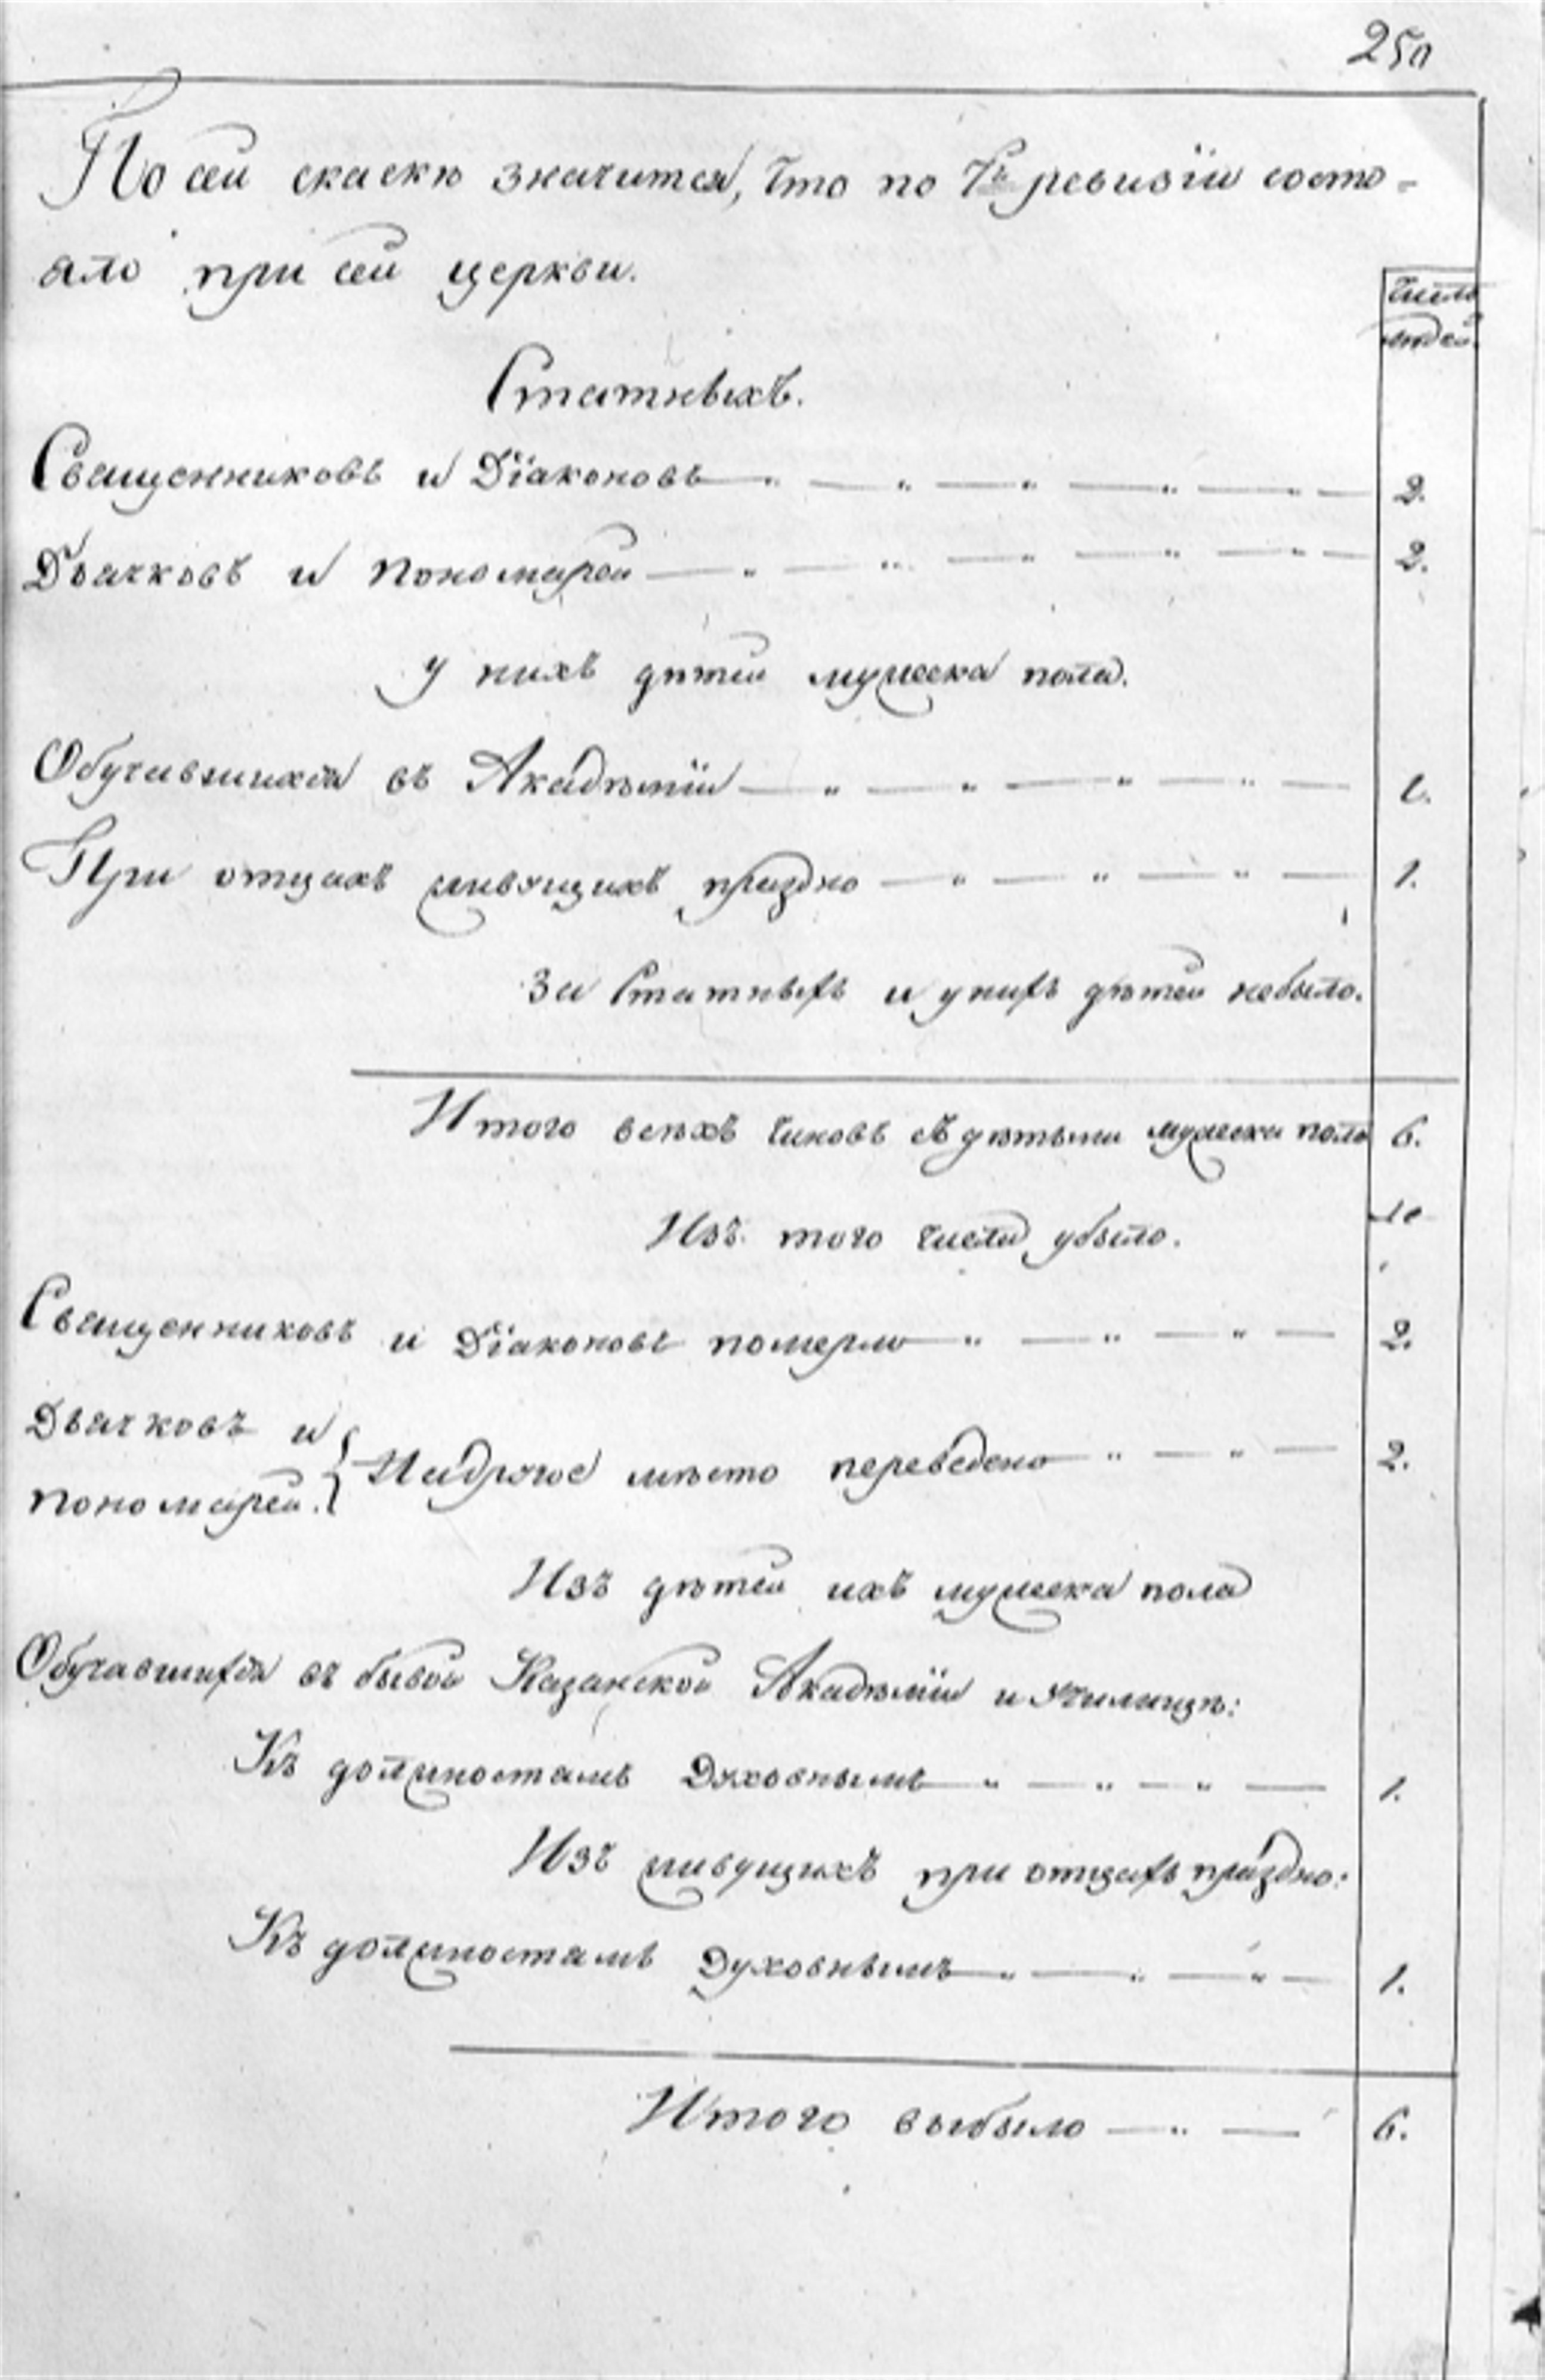 250
По сей скаскѣ значится, что по 7й ревизіи состо-
яло при сей церкви.
Число
людей.
Статныхъ.
Священниковъ и Діаконовъ 2.
Дьячковъ и пономарей 2.
у нихъ дѣтей мужеска пола.
Обучавшихся въ Академіи 1.
При отцахъ живущихъ праздно 1.
За Статныхъ и у нихъ дѣтей небыло.
Итого всѣхъ чиновъ съ дѣтьми мужеска пола 6.
Изъ того числа убыло.
Священниковъ и Діаконовъ померло 2.
Дьячковъ и
пономарей. } На другое мѣсто переведено 2.
Изъ дѣтей ихъ мужеска пола
Обучавшихся въ бывой Казанской Академіи и училищѣ:
Къ должностямъ Духовнымъ 1.
Изъ живущихъ при отцахъ праздно:
Къ должностямъ Духовнымъ 1.
Итого выбыло 6.